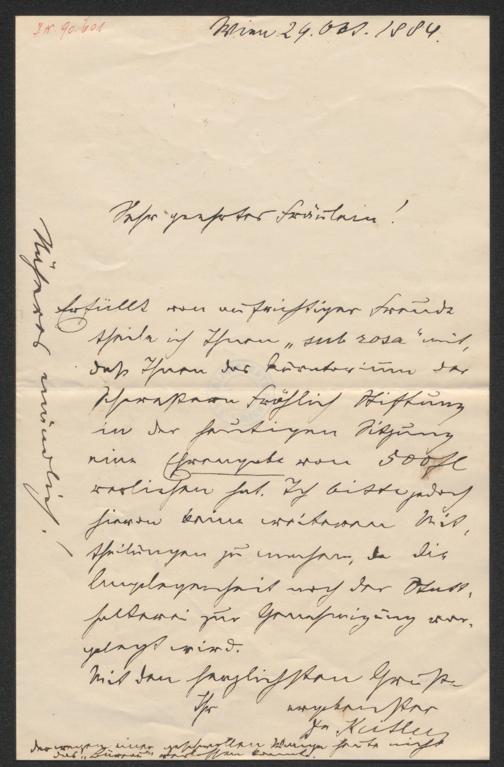 I.N. 90.401
Wien 29. Okt. 1884.
Sehr geehrtes Fräulein!
Erfüllt von aufrichtiger Freude
theile ich Ihnen „sub rosa" mit,
daß Ihnen das Kuratorium der
Schwestern Fröhlich Stiftung
in der heutigen Sitzung
eine Ehrengabe von 500 fl
verliehen hat. Ich bitte jedoch
hievon keine weiteren Mit-
theilungen zu machen, da die
Angelegenheit noch der Statt-
halterei zur Genehmigung vor-
gelegt wird.
Mit den herzlichsten Grüßen
Ihr ergebenster
der wegen einer geschwollenen Wange heute nicht
das „Bureau" verlassen konnte.
Näheres mündlich!